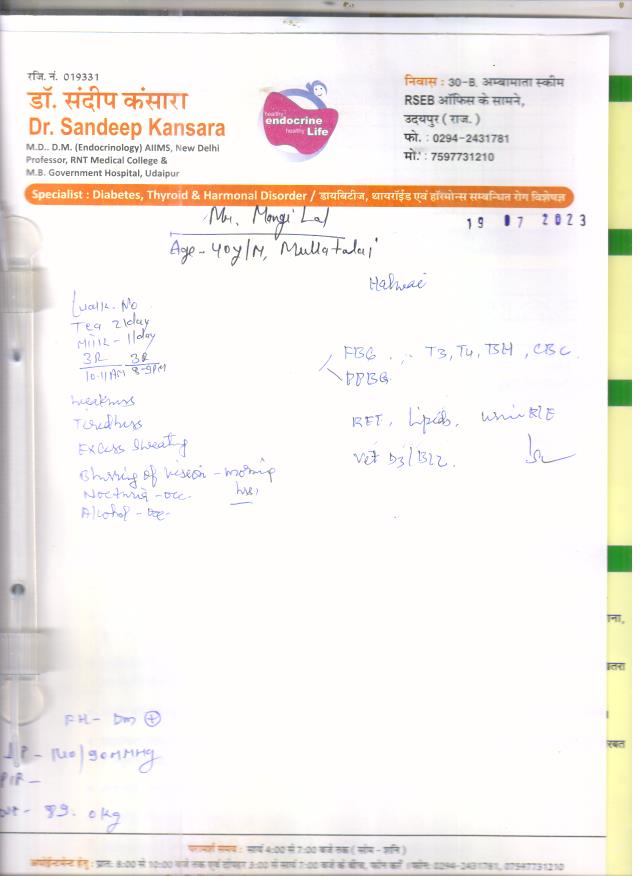 रजि. नं. 019331
डॉ. संदीप कंसारा
Dr. Sandeep Kansara
M.D.. D.M. (Endocrinology) AIIMS, New Delhi
Professor, RNT Medical College &
M.B. Government Hospital, Udaipur
healthy
endocrine
healthy Life
निवास : 30-B, अम्बामाता स्कीम
RSEB ऑफिस के सामने,
उदयपुर ( राज. )
फो. : 0294-2431781
मो.: 7597731210
Specialist : Diabetes, Thyroid & Harmonal Disorder / डायबिटीज, थायरॉईड एवं हॉरमोन्स सम्बन्धित रोग विशेषज्ञ
Mr. Mangi Lal
19 07 2023
Age - 40y/M, Mullatalai
Halwai
Walk - No
Tea 2/day
Milk - 1/day
3R 3R
10-11AM 8-9PM
Weakness
Tiredness
Excess Sweating
Blurring of vision - morning
hrs,
Nocturia - occ
Alcohol - occ
FBG T3, T4, TSH, CBC
PPBG
RFT, Lipids, urine R/E
Vit D3/B12.
FH - Dm +
BP - 140/90MMHg
P/R -
wt - 89.0kg
परामर्श समय : सायं 4:00 से 7:00 बजे तक ( सोम - शनि )
अपोईन्टमेन्ट हेतु : प्रात: 8:00 से 10:00 बजे तक एवं दोपहर 3:00 से सायं 7:00 बजे के बीच, फोन करें । फोन: 0294-2431781, 07597731210